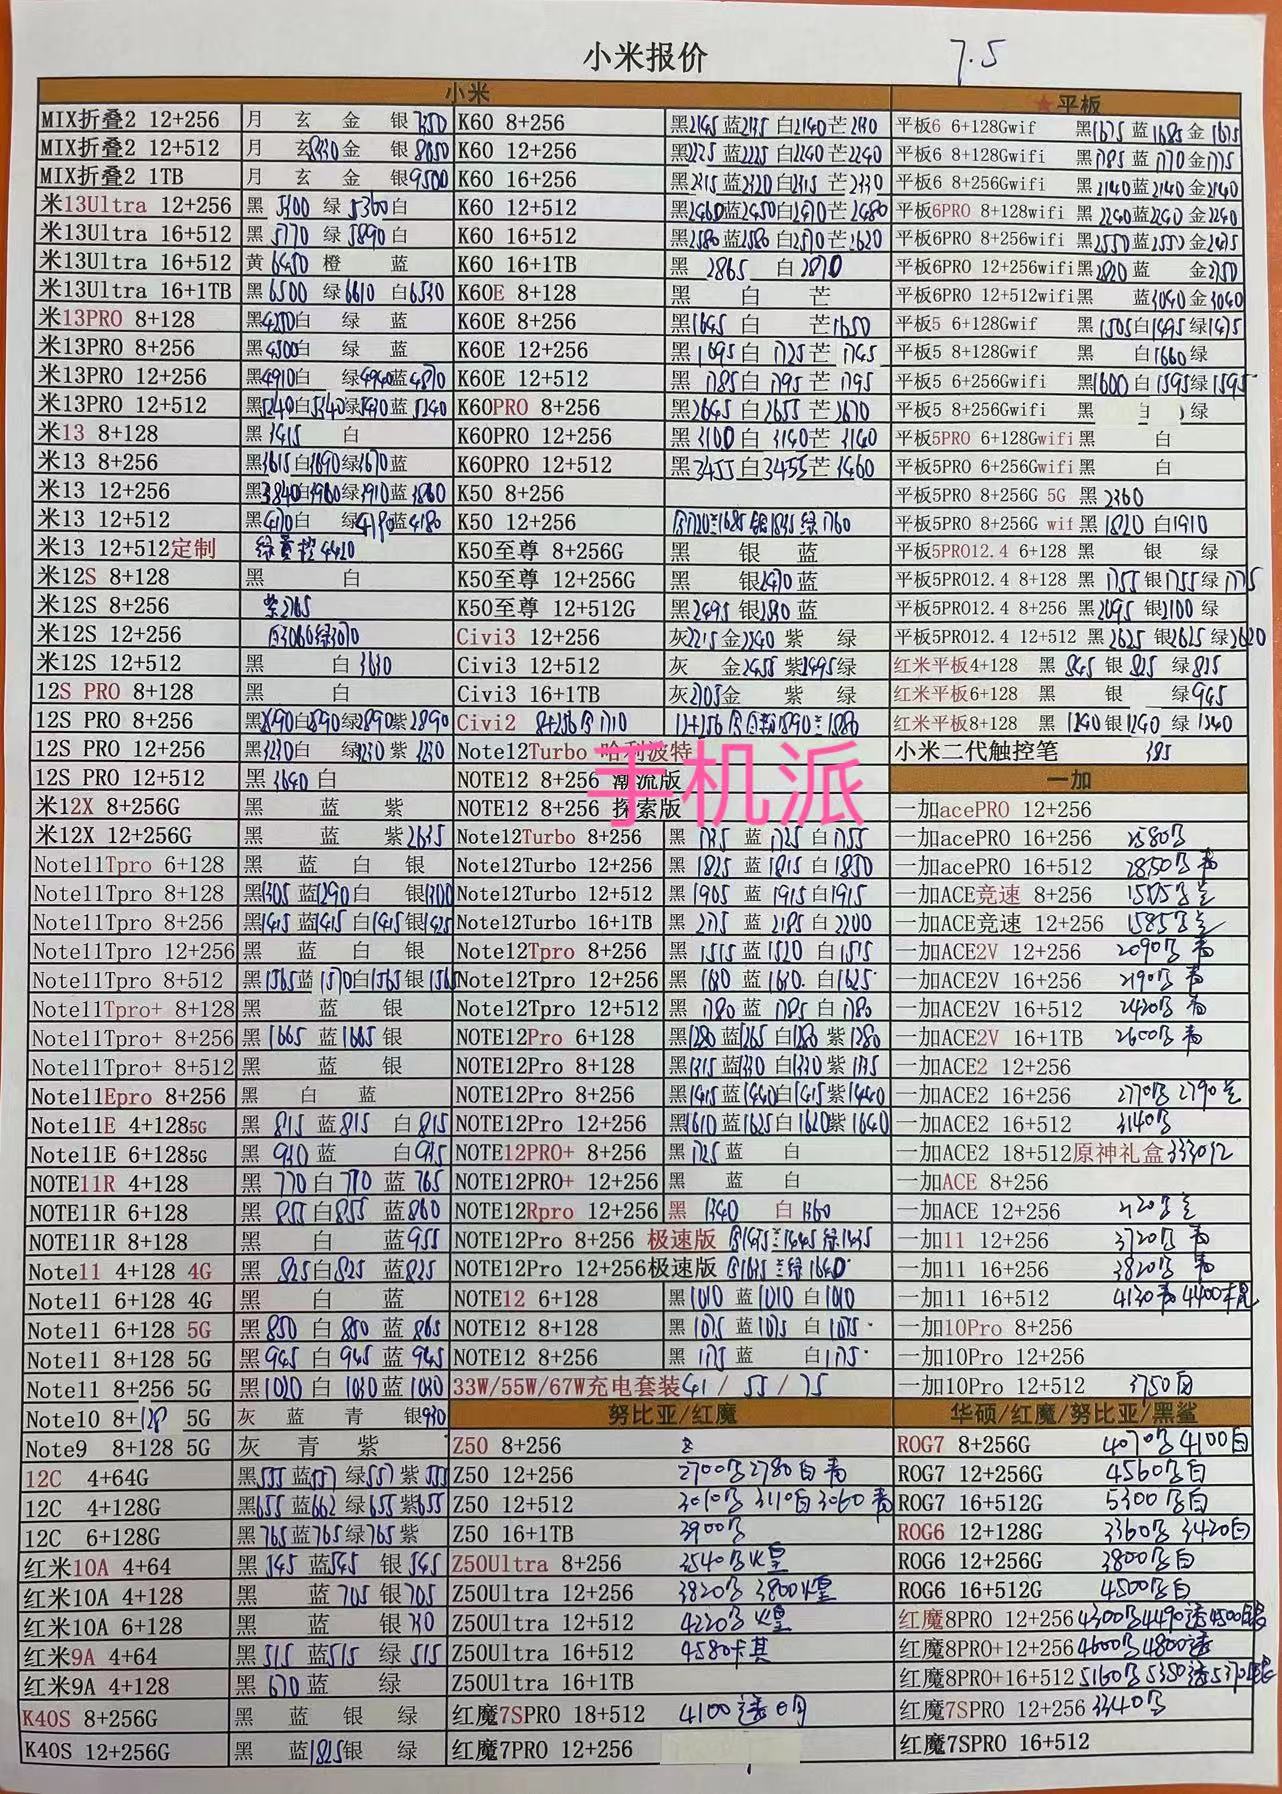 小米报价 7.5
小米
MIX折叠2 12+256 月 玄 金 银7350
MIX折叠2 12+512 月 玄8230金 银8650
MIX折叠2 1TB 月 玄 金 银9500
米13Ultra 12+256 黑 5300 绿 5360白
米13Ultra 16+512 黑 5770 绿 5890 白
米13Ultra 16+512 黄 6450 橙 蓝
米13Ultra 16+1TB 黑 6500 绿6610 白6530
米13PRO 8+128 黑4250白 绿 蓝
米13PRO 8+256 黑4500白 绿 蓝
米13PRO 12+256 黑4910白 绿4940蓝4870
米13PRO 12+512 黑5240白5340绿 蓝 5240
米13 8+128 黑 3415 白
米13 8+256 黑3615白3690绿3670蓝
米13 12+256 黑3840白 绿3910蓝3860
米13 12+512 黑4170白 绿4190蓝4180
米13 12+512定制 绿黄橙4420
米12S 8+128 黑 白
米12S 8+256 紫2765
米12S 12+256 白3060绿3070
米12S 12+512 黑 白3630
12S PRO 8+128 黑 白
12S PRO 8+256 黑2890白2890绿2890紫2890
12S PRO 12+256 黑3230白 绿3230紫 3230
12S PRO 12+512 黑 3640 白
米12X 8+256G 黑 蓝 紫
米12X 12+256G 黑 蓝 紫2635
Note11Tpro 6+128 黑 蓝 白 银
Note11Tpro 8+128 黑1305 蓝1290白 银1300
Note11Tpro 8+256 黑1415 蓝1415 白1415银1425
Note11Tpro 12+256 黑 蓝 白 银
Note11Tpro 8+512 黑1565蓝 1570白1565银1565
Note11Tpro+ 8+128 黑 蓝 银
Note11Tpro+ 8+256 黑 1665 蓝1665 银
Note11Tpro+ 8+512 黑 蓝 银
Note11Epro 8+256 黑 白 蓝
Note11E 4+1285G 黑 815 蓝815 白 815
Note11E 6+1285G 黑 930 蓝 白935
NOTE11R 4+128 黑 770白 770 蓝 765
NOTE11R 6+128 黑 855白855 蓝860
NOTE11R 8+128 黑 白 蓝955
Note11 4+128 4G 黑 825白825 蓝825
Note11 6+128 4G 黑 白 蓝
Note11 6+128 5G 黑850 白 850 蓝 865
Note11 8+128 5G 黑945 白 945 蓝 945
Note11 8+256 5G 黑1020 白 1030 蓝1030
Note10 8+128 5G 灰 蓝 青 银930
Note9 8+128 5G 灰 青 紫
12C 4+64G 黑555 蓝557 绿557 紫555
12C 4+128G 黑655 蓝662 绿655紫655
12C 6+128G 黑765蓝765绿765 紫
红米10A 4+64 黑 545 蓝545 银 545
红米10A 4+128 黑 蓝 705 银705
红米10A 6+128 黑 蓝 银730
红米9A 4+64 黑 515 蓝515 绿 515
红米9A 4+128 黑 670 蓝 绿
K40S 8+256G 黑 蓝 银 绿
K40S 12+256G 黑 蓝1825银 绿
K60 8+256 黑2145蓝2135 白2140芒2130
K60 12+256 黑2225 蓝2225 白2240 芒2240
K60 16+256 黑2315蓝2320白2315 芒2330
K60 12+512 黑2460蓝2450白2470芒2480
K60 16+512 黑2580蓝2580 白2570芒2620
K60 16+1TB 黑 2865 白2870
K60E 8+128 黑 白 芒
K60E 8+256 黑1645 白 芒1650
K60E 12+256 黑 1695白 1725芒 1745
K60E 12+512 黑 1785白 1795 芒 1795
K60PRO 8+256 黑2645白2655 芒2670
K60PRO 12+256 黑3100白 3140芒3140
K60PRO 12+512 黑3455白3455芒3460
K50 8+256
K50 12+256 1685 银1835 绿1760
K50至尊 8+256G 黑 银 蓝
K50至尊 12+256G 黑 银2470蓝
K50至尊 12+512G 黑2495 银 蓝
Civi3 12+256 灰2215金2240 紫 绿
Civi3 12+512 灰 金2455 紫2495绿
Civi3 16+1TB 灰2705金 紫 绿
Civi2 8+256 1710 12+256
Note12Turbo 哈利波特
NOTE12 8+256 潮流版
NOTE12 8+256 探索版
Note12Turbo 8+256 黑 1735 蓝 1725 白1755
Note12Turbo 12+256 黑 1825 蓝 1815 白 1850
Note12Turbo 12+512 黑 1905 蓝 1915白1915
Note12Turbo 16+1TB 黑 2175 蓝 2185 白 2200
Note12Tpro 8+256 黑 1515 蓝1520 白1515
Note12Tpro 12+256 黑 1680 蓝1630. 白1625
Note12Tpro 12+512 黑 1780 蓝 1785 白 1780
NOTE12Pro 6+128 黑1280 蓝1265 白1280 紫1280
NOTE12Pro 8+128 黑1315 蓝1330 白1330 紫 1335
NOTE12Pro 8+256 黑1415 蓝1440白1415紫1440
NOTE12Pro 12+256 黑1610 蓝1625白1620紫1640
NOTE12PRO+ 8+256 黑1725蓝 白
NOTE12PRO+ 12+256 黑 蓝 白
NOTE12Rpro 12+256 黑 1340 白 1360
NOTE12Pro 8+256 极速版 1435 1445 绿1435
NOTE12Pro 12+256极速版 1635 绿1640
NOTE12 6+128 黑1010 蓝1010 白1010
NOTE12 8+128 黑 1075 蓝1075 白 1075
NOTE12 8+256 黑 1175 蓝 白1175
33W/55W/67W充电套装41 / 55 / 75
努比亚/红魔
Z50 8+256
Z50 12+256 2700 2780白 青
Z50 12+512 3010 3110白3060 青
Z50 16+1TB 3900
Z50Ultra 8+256 3540
Z50Ultra 12+256 3820 3800
Z50Ultra 12+512 4220
Z50Ultra 16+512 4580卡其
Z50Ultra 16+1TB
红魔7SPRO 18+512 4100透明
红魔7PRO 12+256
★平板
平板6 6+128Gwif 黑1675 蓝1685 金1675
平板6 8+128Gwifi 黑1785 蓝1770金1775
平板6 8+256Gwifi 黑2140蓝2140 金2140
平板6PRO 8+128wifi 黑 2240蓝2240 金2240
平板6PRO 8+256wifi 黑2550蓝2550 金2475
平板6PRO 12+256wifi黑2820 蓝 金2750
平板6PRO 12+512wifi黑 蓝3040 金3040
平板5 6+128Gwif 黑 1505白1495 绿1475
平板5 8+128Gwif 黑 白1660绿
平板5 6+256Gwifi 黑1600 白1595绿1595
平板5 8+256Gwifi 黑 白 绿
平板5PRO 6+128Gwifi黑 白
平板5PRO 6+256Gwifi黑 白
平板5PRO 8+256G 5G 黑 2360
平板5PRO 8+256G wif黑1820 白1910
平板5PRO12.4 6+128 黑 银 绿
平板5PRO12.4 8+128 黑 1755银1755绿1775
平板5PRO12.4 8+256 黑2095 银2100 绿
平板5PRO12.4 12+512 黑2625 银2625 绿2620
红米平板4+128 黑 845 银 825 绿835
红米平板6+128 黑 银 绿945
红米平板8+128 黑 1240银1240 绿 1240
小米二代触控笔 385
一加
一加acePRO 12+256
一加acePRO 16+256 2580
一加acePRO 16+512 2850 青
一加ACE竞速 8+256
一加ACE竞速 12+256 1585
一加ACE2V 12+256 2090 青
一加ACE2V 16+256 2190 青
一加ACE2V 16+512 2420 青
一加ACE2V 16+1TB 2600 青
一加ACE2 12+256
一加ACE2 16+256 2770 2790
一加ACE2 16+512 3140
一加ACE2 18+512原神礼盒3330红
一加ACE 8+256
一加ACE 12+256 2120
一加11 12+256 3720 青
一加11 16+256 3820 青
一加11 16+512 4130青4400
一加10Pro 8+256
一加10Pro 12+256
一加10Pro 12+512 3750白
华硕/红魔/努比亚/黑鲨
ROG7 8+256G 4070 4100白
ROG7 12+256G 4560 白
ROG7 16+512G 5300 白
ROG6 12+128G 3360 3420白
ROG6 12+256G 3800 白
ROG6 16+512G 4500 白
红魔8PRO 12+256 4300 4490透4500
红魔8PRO+12+256 4600 4800透
红魔8PRO+16+512 5160 5350透5370
红魔7SPRO 12+256 3340
红魔7SPRO 16+512
手机派